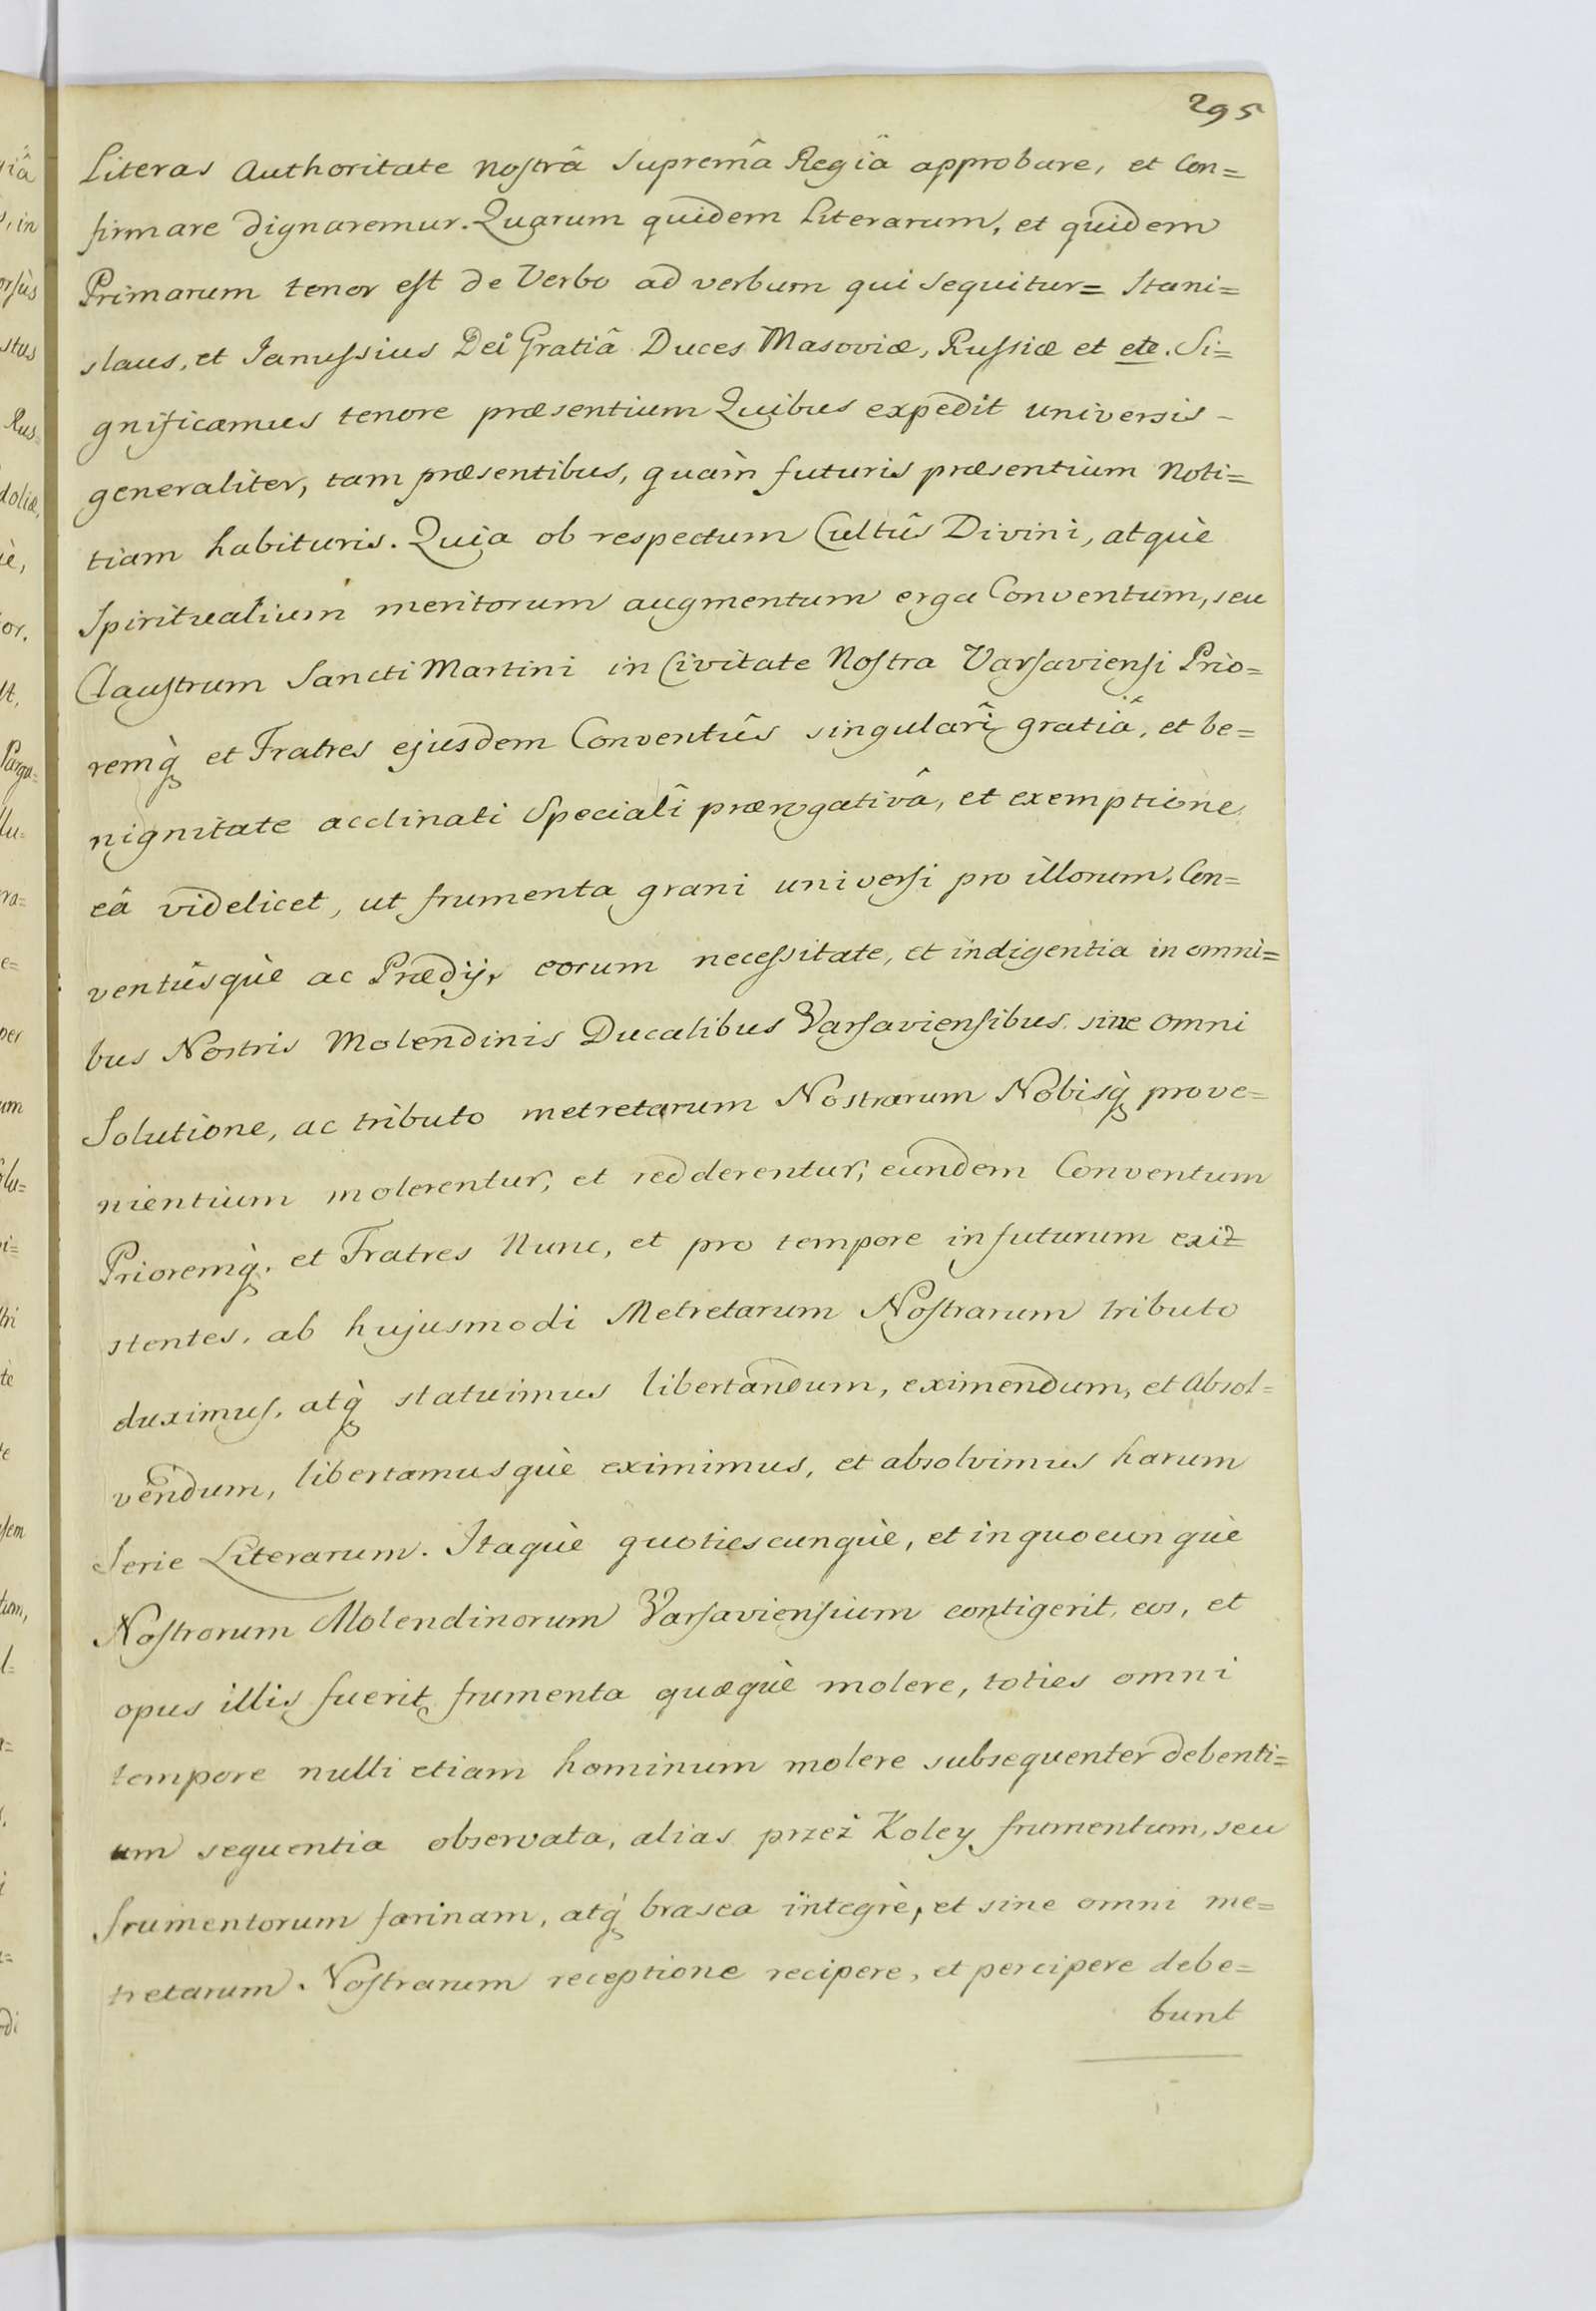 295
Literas Authoritate nostrâ Supremâ Regiâ approbare, et Con=
firmare dignaremur. Quarum quidem Literarum, et quidem
Primarum tenor est de Verbo ad verbum qui sequitur= Stani=
slaus, et Janussius Dei Gratiâ Duces Masoviæ, Russiæ et etc. Si=
gnificamus tenore præsentium Quibus expedit universis-
generaliter, tam præsentibus, quàm futuris præsentium Noti=
tiam habituris. Quia ob respectum Cultûs Divini, atquè
Spiritualium meritorum augmentum erga Conventum, seu
Claustrum Sancti Martini in Civitate Nostra Varsaviensi Prio=
remq̀ et Fratres ejusdem Conventûs singularî gratiâ, et be=
nignitate acclinati Specialî prærogativâ, et exemptione
eâ videlicet, ut frumenta grani universi pro illorum, Con=
ventûsquè ac Prædijs eorum necessitate, et indigentia in omni=
bus Nostris Molendinis Ducalibus Varsaviensibus sine omni
Solutione, ac tributo metretarum Nostrarum Nobisq̀ prove=
nientium molerentur, et redderentur, eundem Conventum
Prioremq̀. et Fratres Nunc, et pro tempore in futurum exi=
stentes, ab hujusmodi Metretarum Nostrarum tributo
duximus, atq̀ statuimus libertandum, eximendum, et Absol=
vendum, libertamusquè eximimus, et absolvimus harum
Serie Literarum. Itaquè quotiescunquè, et in quocunquè
Nostrorum Molendinorum Varsaviensium contigerit, eos, et
opus illis fuerit frumenta quæquè molere, toties omni
tempore nulli etiam hominum molere subsequenter debenti=
um sequentia observata, alias przez Koley frumentum, seu
frumentorum farinam, atq̀ brasea integrè, et sine omni me=
tretarum. Nostrarum receptione recipere, et percipere debe=
bunt